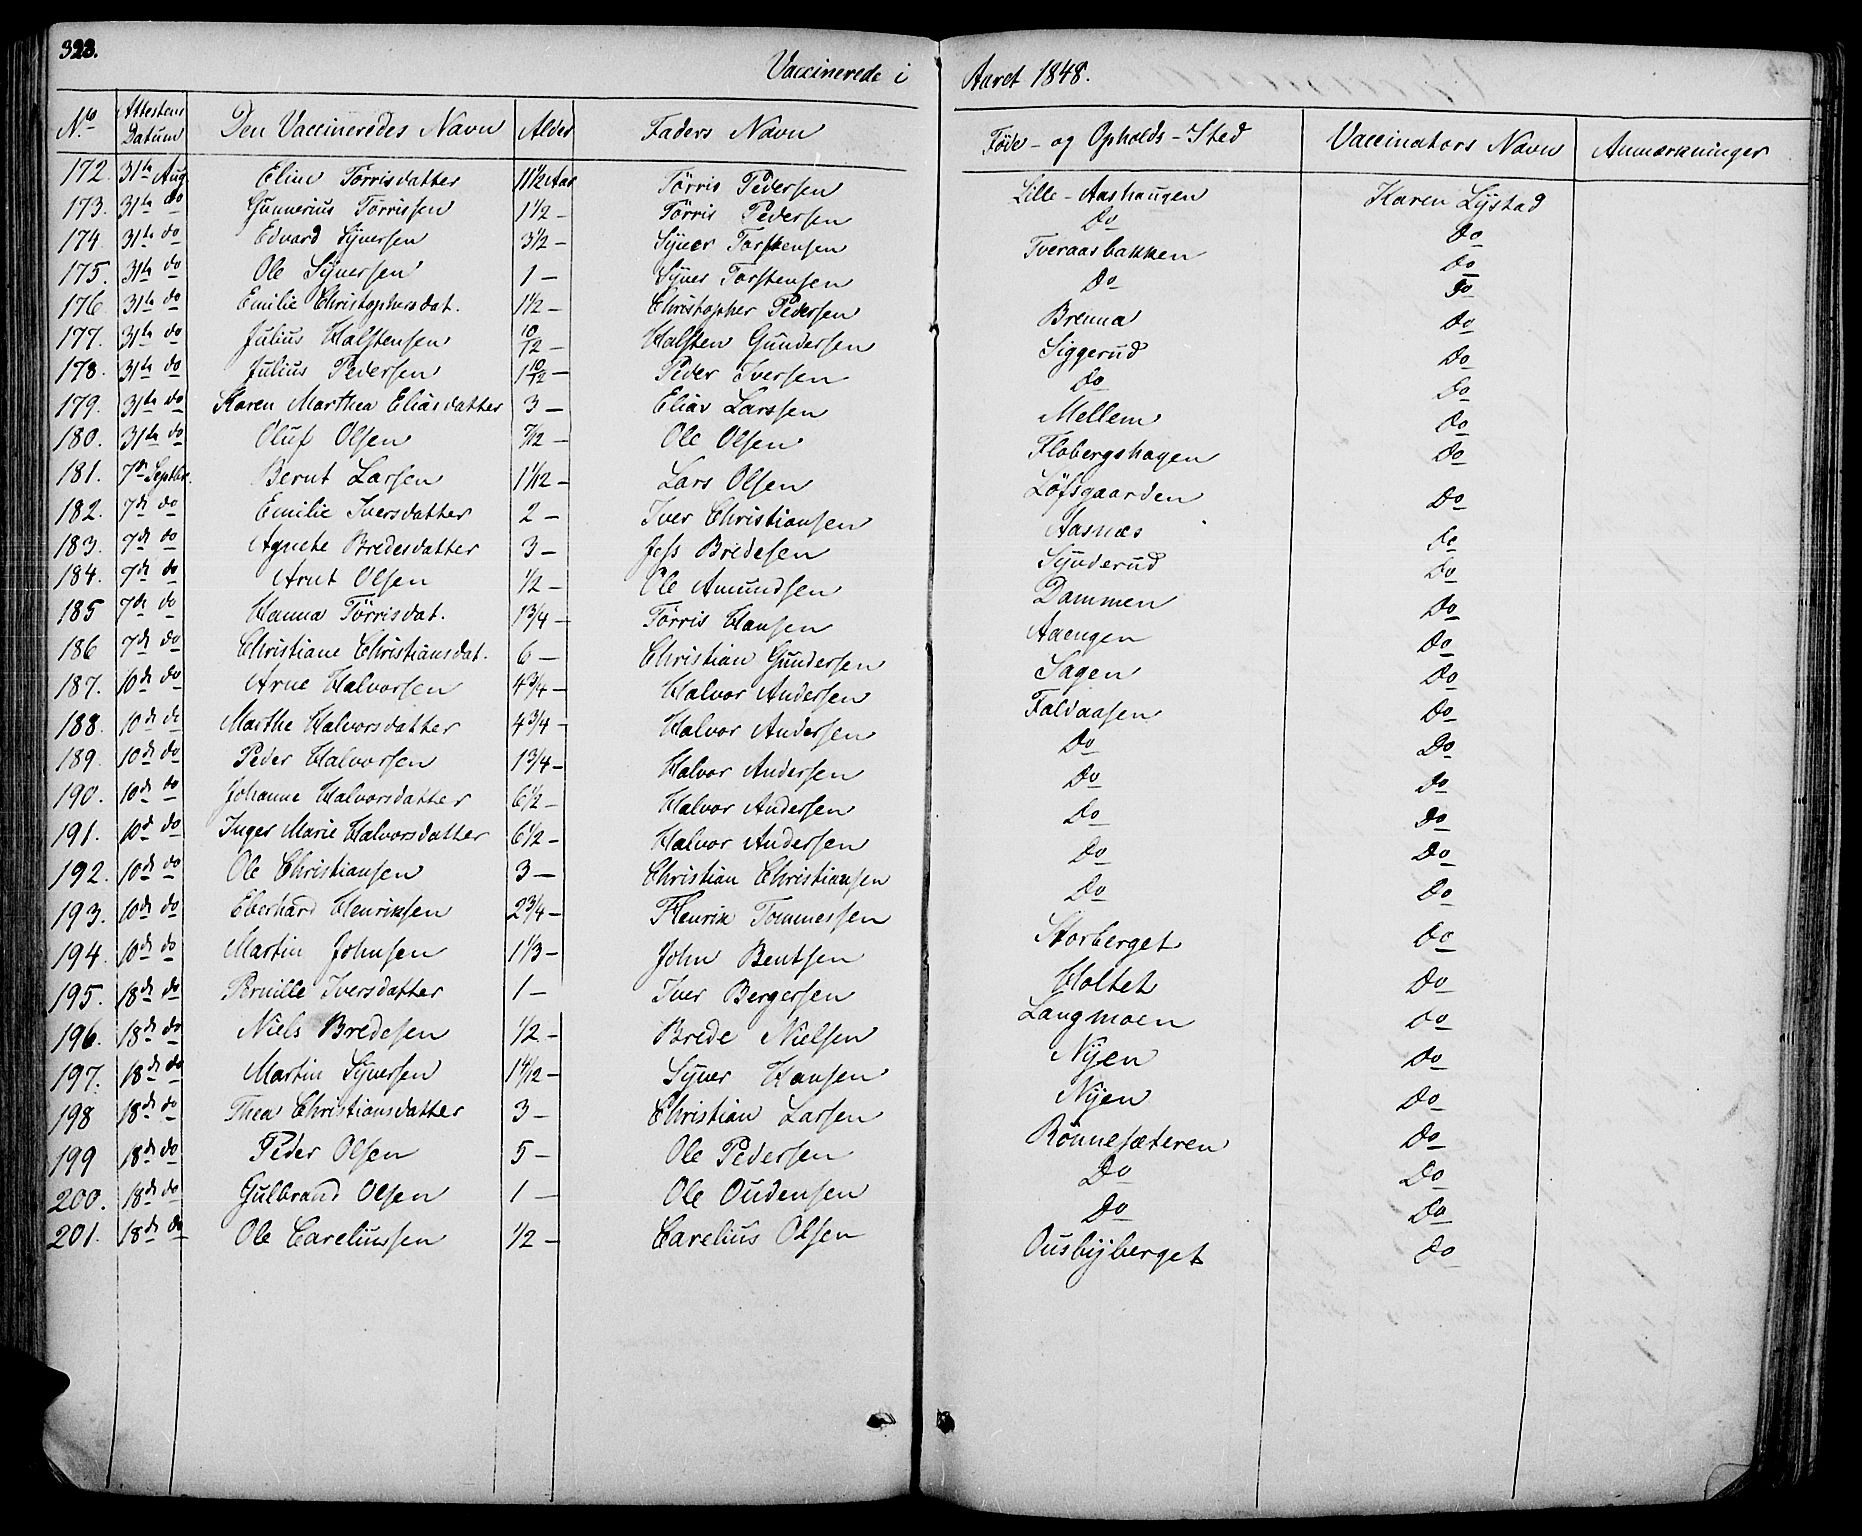 323.
Vaccinerede i Aaret 1848.
No Attestens Datum Den Vaccineredes Navn Alder Faders Navn Føde- og Opholds-Sted Vaccinators Navn Anmærkninger
172. 31te Aug. Eline Tørrisdatter 11 1/2 Aar Tørris Pedersen Lille-Aashaugen Karen Lystad
173. 31te do Gunnerius Tørrissen 1 1/2 — Tørris Pedersen Do Do
174. 31te do Edvard Syversen 3 1/2 — Syver Torstensen Tveraasbakken Do
175. 31te do Ole Syversen 1 — Syver Torstensen Do Do
176. 31te do Emilie Christophersdat. 1 1/2 — Christopher Pedersen Brenna Do
177. 31te do Julius Halstensen 10/12 — Halsten Gundersen Siggerud Do
178. 31te do Julius Pedersen 1 10/12 — Peder Iversen Do Do
179. 31te do Karen Marthea Eliasdatter 3 — Elias Larssen Mellem Do
180. 31te do Oluf Olsen 7/12 — Ole Olsen Flobergshagen Do
181. 7de Septbr. Bernt Larsen 1 1/12 — Lars Olsen Løfsgaarden Do
182. 7de do Emilie Iversdatter 2 — Iver Christiansen Aasnæs Do
183. 7de do Agnete Bredesdatter 3 — Jess Bredesen Synderud Do
184. 7de do Arnt Olsen 1/2 — Ole Amundsen Dammen Do
185 7de do Hanna Tørrisdat. 1 3/4 — Tørris Hansen Aaengen Do
186 7de do Christiane Christiansdat. 6 — Christian Gundersen Sagen Do
187. 10de do Arne Halvorsen 4 3/4 — Halvor Andersen Faldaasen Do
188. 10de do Marthe Halvorsdatter 4 3/4 — Halvor Andersen Do Do
189. 10de do Peder Halvorsen 1 3/4 — Halvor Andersen Do Do
190. 10de do Johanne Halvorsdatter 6 1/2 — Halvor Andersen Do Do
191. 10d do Inger Marie Halvorsdatter 6 1/2 — Halvor Andersen Do Do
192. 10de do Ole Christiansen 3 — Christian Christiansen Do Do
193. 10de do Eberhard Henriksen 2 3/4 — Henrik Tommessen Storberget Do
194. 10de do Martin Johnsen 1 1/3 — John Bentsen Holtet Do
195. 18de do Pernille Iversdatter 1 — Iver Bergersen Langmoen Do
196. 18de do Niels Bredesen 1/2 — Brede Nielsen Nyen Do
197. 18de do Martin Syversen 1 4/12 — Syver Hansen Nyen Do
198 18de do Thea Christiansdatter 3 — Christian Larsen Rønnesæteren Do
199 18de do Peder Olsen 5 — Ole Pedersen Do Do
200. 18de do Gulbrand Olsen 1 — Ole Oudensen Do Do
201. 18de do Ole Careliussen 1/2 — Carelius Olsen Ousbyberget Do